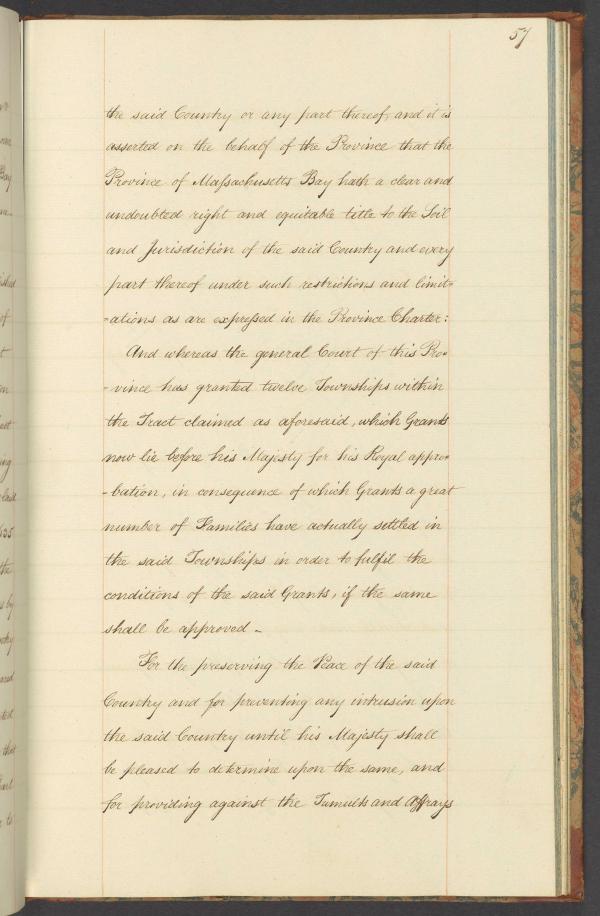 57
the said Country or any part thereof, and it is
asserted on the behalf of the Province that the
Province of Massachusetts Bay hath a clear and
undoubted right and equitable title to the Soil
and Jurisdiction of the said Country and every
part thereof under such restrictions and limit=
=ations as are expressed in the Province Charter:
And whereas the general Court of this Pro=
=vince has granted twelve Townships within
the Tract claimed as aforesaid, which Grants
now lie before his Majesty for his Royal appro=
=bation, in consequence of which Grants a great
number of Families have actually settled in
the said Townships in order to fulfil the
conditions of the said Grants, if the same
shall be approved -
For the preserving the Peace of the said
Country and for preventing any intrusion upon
the said Country until his Majesty shall
be pleased to determine upon the same, and
for providing against the Tumults and Affrays